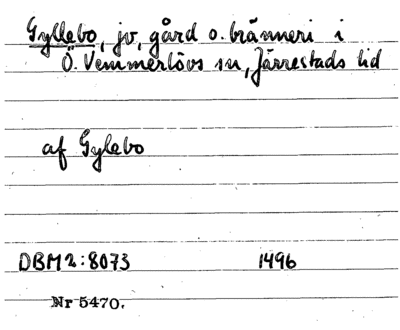 Gyllebo, jv, gård o. bränneri i
Ö. Vemmerlövs sn, Järrestads hd
af Gylebo
DBM 2:8073 1496
Nr 5470.